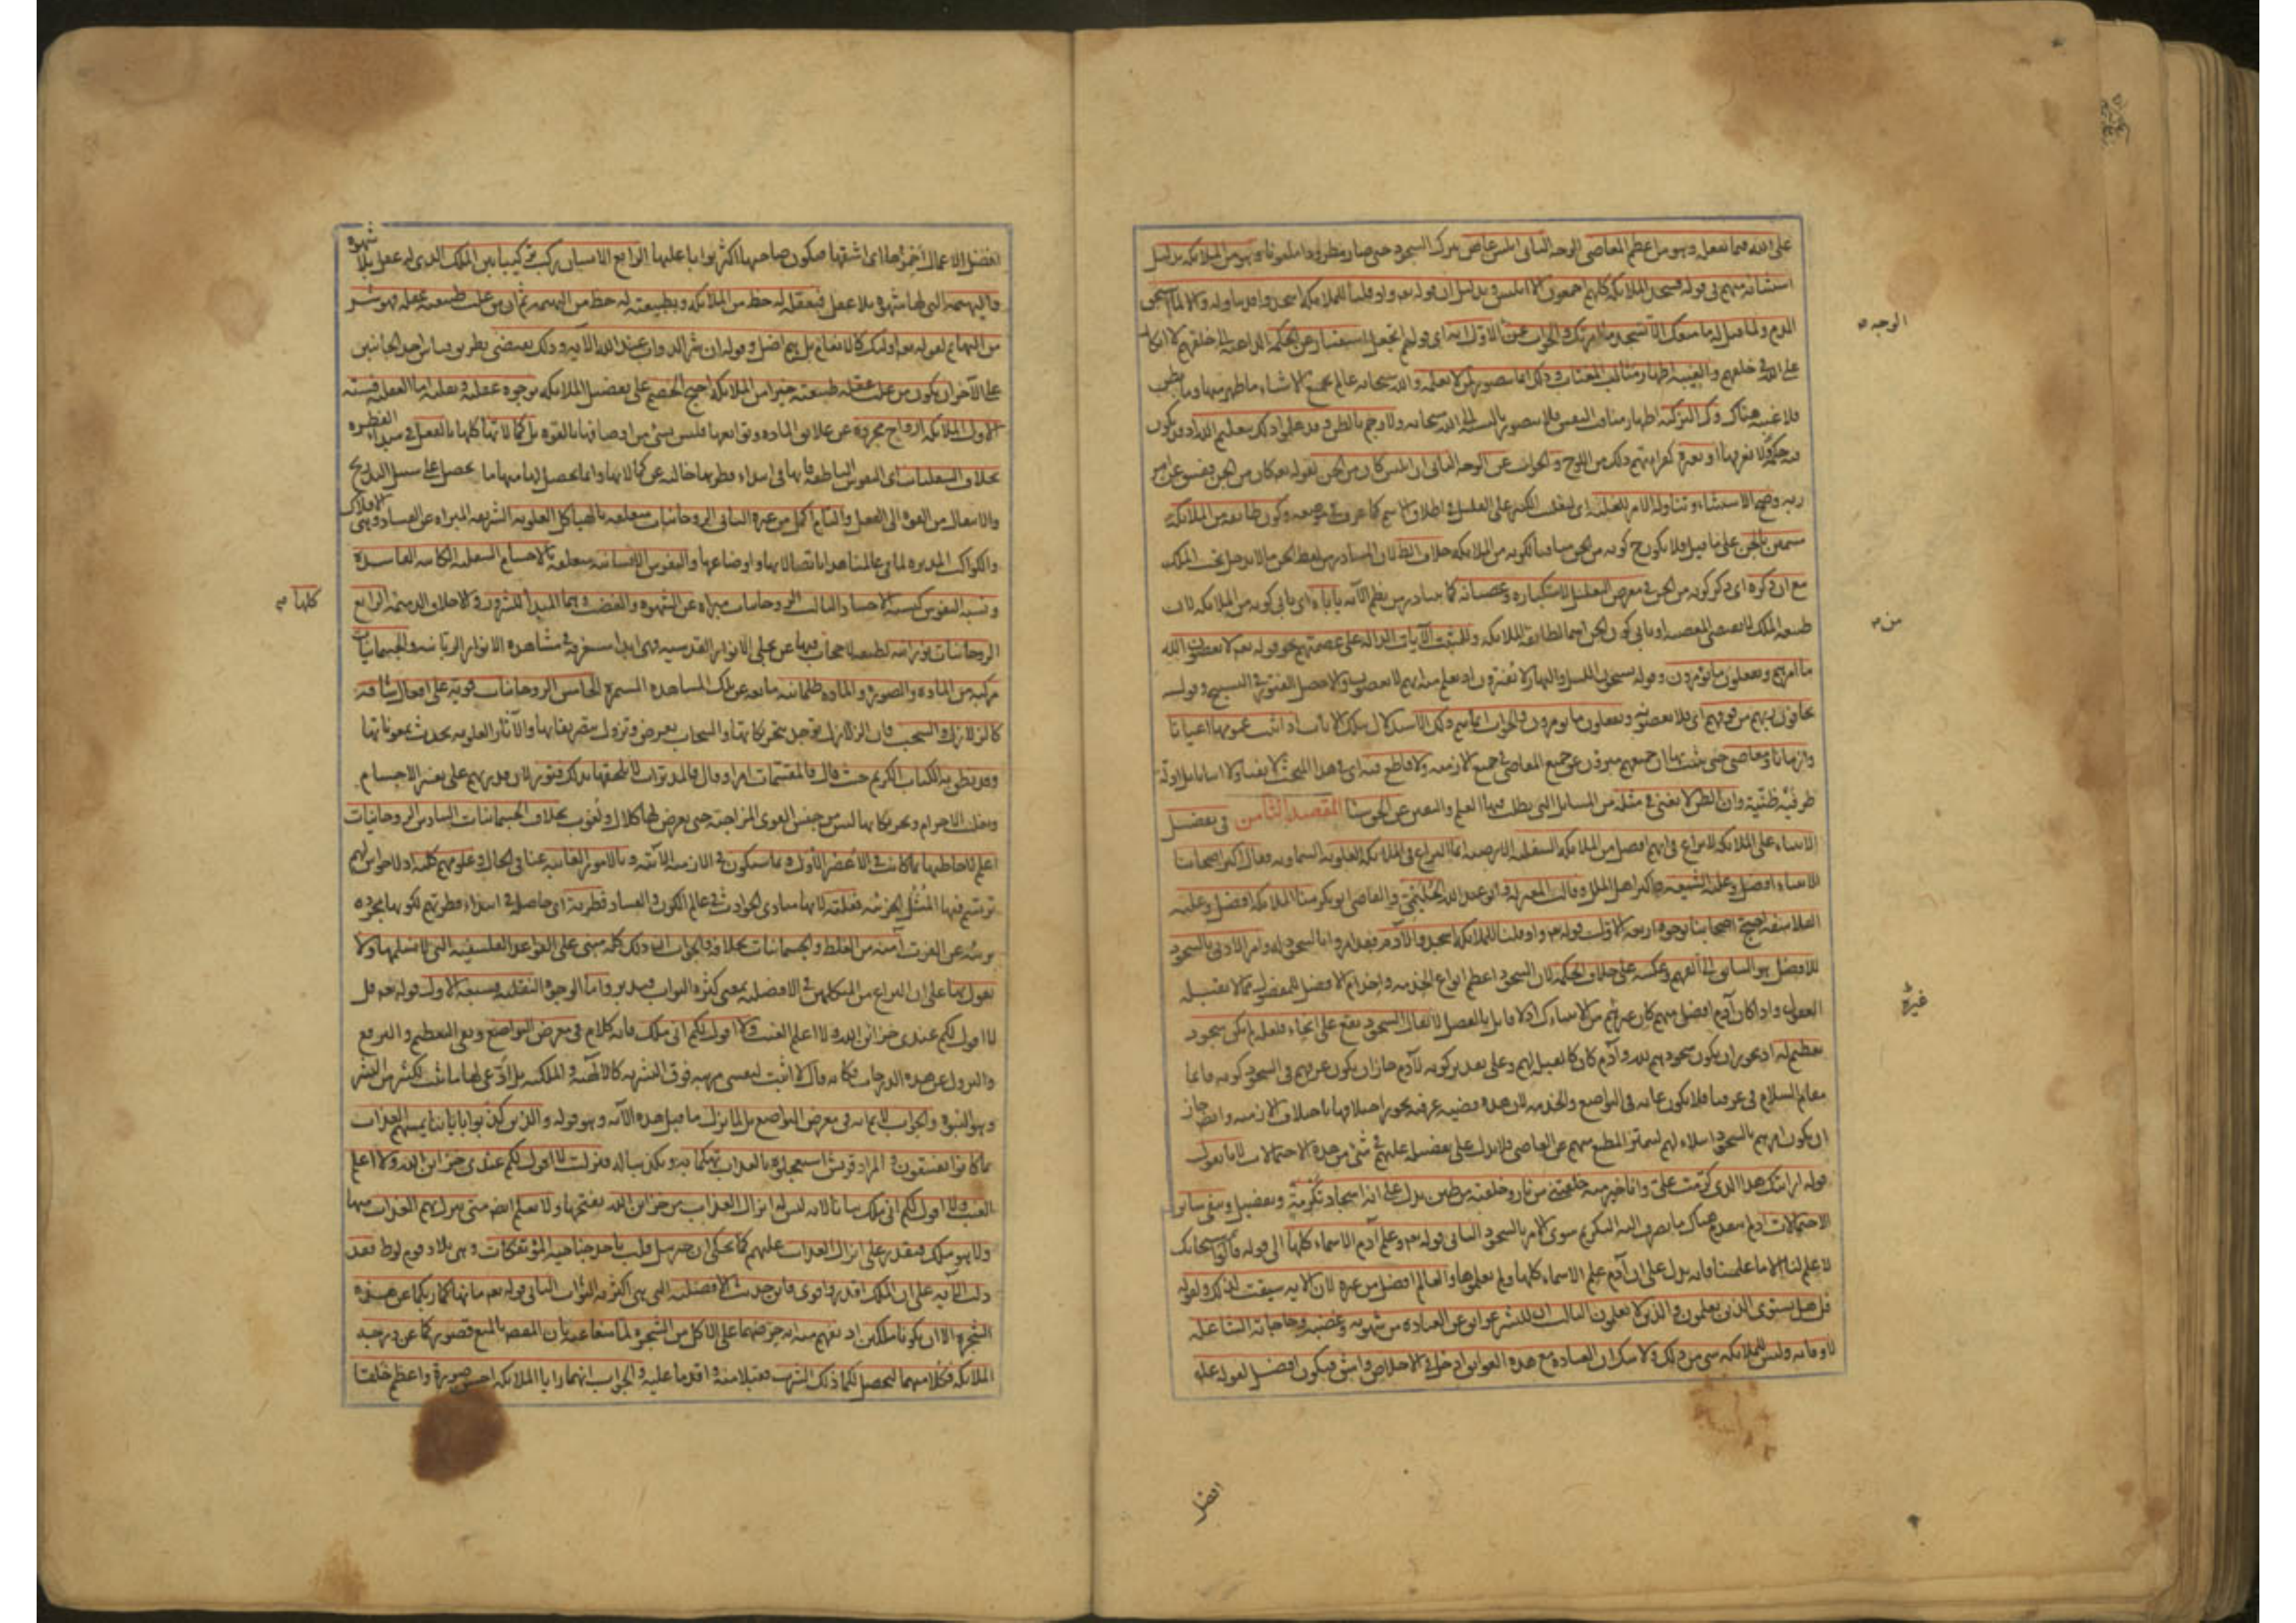 على الله فيما يفعله وهو من اعظم المعاصي الوجه الثاني ابليس عاص بترك السجود حتى صار مطرودا ملعونا وهو من الملائكة بدليل
استثنائه منهم في قوله فسجد الملائكة كلهم اجمعون الا ابليس وبدليل ان قوله تعه واذ قلنا للملائكة اسجدوا قد تناوله والا لما استحق
الذم ولما قيل له ما منعك الا تسجد اذ امرتك والجواب عن الاول انه اى قولهم اتجعل استفسار عن الحكمة الداعية الى خلقهم لا انكار
الوجه
على الله في خلقهم والغيبة اظهار مثالب المغتاب وذلك انما يتصور لمن لا يعلمه والله سبحانه عالم بجميع الاشياء ما ظهر منها وما بطن
فلا غيبة هناك وكذا التزكية اظهار مناقب النفس فلا يتصور بالنسبة الى الله سبحانه ولا رجم بالظن وقد علموا ذلك بتعليم الله او قد يكون
فيه حكمة لا نعرفها او بقرة كقراءتهم ذلك من اللوح والجواب عن الوجه الثاني ان ابليس كان من الجن لقوله تعه كان من الجن ففسق عن امر
ربه وصح الاستثناء وتناوله الامر للغلبة اى لتغليب الكثير على القليل في اطلاق الاسم كما عرفت في موضعه وكون طائفة من الملائكة
مسمين بالجن على ما قيل فلا يكون ح كونه من الجن منافيا لكونه من الملائكة خلاف الظ لان المتبادر من لفظ الجن ما لا يدخل تحت الملك
مع ان ذكره اى ذكر كونه من الجن في معرض التعليل لاستكباره وعصيانه كما يتبادر من نظم الآية ياباه اى يابى كونه من الملائكة لان
طبيعة الملك لا يقتضى المعصية او يابى كون الجن اسما لطائفة الملائكة وللمثبت الآيات الدالة على عصمتهم نحو قوله تعه لا يعصون الله
من
ما امرهم ويفعلون ما يؤمرون وقوله يسبحون الليل والنهار لا يفترون اذ يعلم منه انهم لا يعصون والا لحصل الفتور في التسبيح وقوله
يخافون ربهم من فوقهم اى فلا يعصونه ويفعلون ما يؤمرون والجواب انما يتم ذلك الاستدلال بتلك الآيات اذا اثبت عمومها اعيانا
وازمانا ومعاصي حتى يثبت بها ان جميعهم مبرؤن عن جميع المعاصي في جميع الازمنة ولا قاطع فيه اى في هذا المبحث لا نفيا ولا اثباتا بل ادلة
طرفيه ظنية وان الظن لا يغنى في مثله من المسائل التي يطلب فيها العلم واليقين عن الحق شيئا المقصد الثامن في تفضيل
الانبياء على الملائكة لا نزاع في انهم افضل من الملائكة السفلية الارضية انما النزاع في الملائكة العلوية السماوية فقال اكثر اصحابنا
الانبياء افضل وعليه الشيعة واكثر اهل الملل وقالت المعتزلة وابو عبد الله الحليمي والقاضي ابو بكر منا الملائكة افضل وعليه
الفلاسفة احتج اصحابنا بوجوه اربعة الاول قوله تعه واذ قلنا للملائكة اسجدوا لآدم فقد امروا بالسجود له وامر الادنى بالسجود
للافضل هو السابق الى الفهم وعكسه على خلاف الحكمة لان السجود اعظم انواع الخدمة واخدام الافضل للمفضول مما لا تقبله
العقول واذا كان آدم افضل منهم كان غيرهم من الانبياء كذلك اذ لا قائل بالفصل لا يقال السجود يقع على انحاء فلعله لم يكن سجود
غيره
تعظيم له اذ يجوز ان يكون سجودهم لله وآدم كان كالقبلة لهم وعلى تقدير كونه لآدم جاز ان يكون عرفهم في السجود كونه قائما
مقام السلام في عرفنا فلا يكون غاية في التواضع والخدمة لان هذه قضية عرفية يجوز اختلافها باختلاف الازمنة وايض جاز
ان يكون امرهم بالسجود ابتلاء لهم ليتميز المطيع منهم عن العاصي فلا يدل على تفضيله عليهم في شئ من هذه الاحتمالات لانا نقول
قوله ارايتك هذا الذى كرمت على وانا خير منه خلقتني من نار وخلقته من طين يدل على انه اسجاد تكرمة وتفضيل وينفى سائر
الاحتمالات اذ لم يتقدم هناك ما يصرف اليه التكريم سوى الامر بالسجود الثاني قوله تعه وعلم آدم الاسماء كلها الى قوله قالوا سبحانك
لا علم لنا الا ما علمتنا فانه يدل على ان آدم علم الاسماء كلها ولم يعلموها والعالم افضل من غيره لان الآية سيقت لذلك ولقوله
قل هل يستوى الذين يعلمون والذين لا يعلمون الثالث ان للبشر عوائق عن العبادة من شهوته وغضبه وحاجاته الشاغلة
لاوقاته وليس للملائكة شئ من ذلك ولا شك ان العبادة مع هذه العوائق ادخل في الاخلاص واشق فيكون افضل لقوله عليه
افضل
افضل الاعمال احمزها اى اشقها فيكون صاحبها اكثر ثوابا عليها الرابع الانسان ركب تركيبا بين الملك الذى له عقل بلا شهوة
والبهيمة التي لها شهوة بلا عقل فبعقله له حظ من الملائكة وبطبيعته له حظ من البهيمة ثم ان من غلبت طبيعته عقله فهو شر
من البهائم لقوله تعه اولئك كالانعام بل هم اضل وقوله ان شر الدواب عند الله الآية وذلك يقتضى بطريق قياس احد الجانبين
على الآخر ان يكون من غلب عقله طبيعته خيرا من الملائكة احتج الخصم على تفضيل الملائكة بوجوه عقلية ونقلية اما العقلية فستة
الاول الملائكة ارواح مجردة عن علائق المادة وتوابعها فليس شئ من اوصافها بالقوة بل كمالاتها كلها بالفعل في مبداء الفطرة
بخلاف السفليات اى النفوس الناطقة فانها في ابتداء فطرتها خالية عن كمالاتها وانما يحصل لها منها ما يحصل على سبيل التدريج
والانتقال من القوة الى الفعل والتام اكمل من غيره الثاني الروحانيات متعلقة بالهياكل العلوية الشريفة المبراة عن الفساد وهى الافلاك
والكواكب المدبرة لما في عالمنا هذا باتصالاتها واوضاعها والنفوس الانسانية متعلقة بالاجسام السفلية الكائنة الفاسدة
ونسبة النفوس كنسبة الاجساد الثالث الروحانيات مبراة عن الشهوة والغضب وهما المبدأ للشرور والاخلاق الذميمة الرابع
كلها
الروحانيات نورانية لطيفة لا حجاب فيها عن تجلى الانوار القدسية فهى ابدا مستغرقة في مشاهدة الانوار الربانية والجسمانيات
مركبة من المادة والصورة والمادة ظلمانية مانعة عن تلك المشاهدة المستمرة الخامس الروحانيات قوية على افعال شاقة
كالزلازل والسحب فان الزلازل توجد بتحريكاتها والسحاب يعرض وتزول بتصريفاتها والآثار العلوية يحدث بمعوناتها
وقد نطق به الكتاب الكريم حيث قال فالمقسمات امرا وقال فالمدبرات لا يلحقها بذلك فتور لان قدرتهم على تغيير الاجسام
وتقليب الاجرام وتحريكاتها ليس من جنس القوى المزاجية حتى يعرض لها كلال ولغوب بخلاف الجسمانيات السادس الروحانيات
اعلم لاحاطتها بما كانت في الاعصر الاول وما سيكون في الازمنة الآتية وبالامور الغائبة عنا في الحال وعلومهم كلية اذ لا حواس لهم
ترتسم فيها المثل الجزئية فعلية لانها مبادى الحوادث في عالم الكون والفساد فطرية اى حاصلة في ابتداء فطرتهم لكونها مجردة
بريئة عن القوة آمنة من الغلط والجسمانيات بخلافه والجواب ان ذلك كله مبنى على القواعد الفلسفية التي لا نسلمها ولا
نقول بها على ان النزاع من المتكلمين في الافضلية بمعنى كثرة الثواب فتدبر واما الوجوه النقلية فسبعة الاول قوله تعه قل
لا اقول لكم عندى خزائن الله ولا اعلم الغيب ولا اقول لكم انى ملك فانه كلام في معرض التواضع ونفى التعظيم والترفع
والنزول عن هذه الدرجات فكانه قال لا اثبت لنفسى مرتبة فوق البشرية كالالهية والملكية بل ادعى لها ما ثبت لكثير من البشر
وهو النبوة والجواب لا نم انه في معرض التواضع بل لما نزل ما قبل هذه الآية وهو قوله والذين كذبوا باياتنا يمسهم العذاب
بما كانوا يفسقون والمراد قريش استعجلوه بالعذاب تهكما به وتكذيبا له فنزلت لا اقول لكم عندى خزائن الله ولا اعلم
الغيب ولا اقول لكم انى ملك بيانا لانه ليس له انزال العذاب من خزائن الله يفتحها ولا يعلم ايض متى ينزل بهم العذاب منها
ولا هو ملك فيقدر على انزال العذاب عليهم كما يحكى ان جبريل قلب باحد جناحيه المؤتفكات وهى بلاد قوم لوط فقد
دلت الآية على ان الملك اقدر واقوى فاين حديث الافضلية التي هى اكثرية الثواب الثاني قوله تعه ما نهاكما ربكما عن هذه
الشجرة الا ان تكونا ملكين اذ يفهم منه انه حرضهما على الاكل من الشجرة لما منعا عنه بان المقصد بالمنع قصوركما عن درجة
الملائكة فكلا منها ليحصل لكما ذلك الشرف فقبلا منه واقدما عليه والجواب انهما رايا الملائكة احسن صورة واعظم خلقا